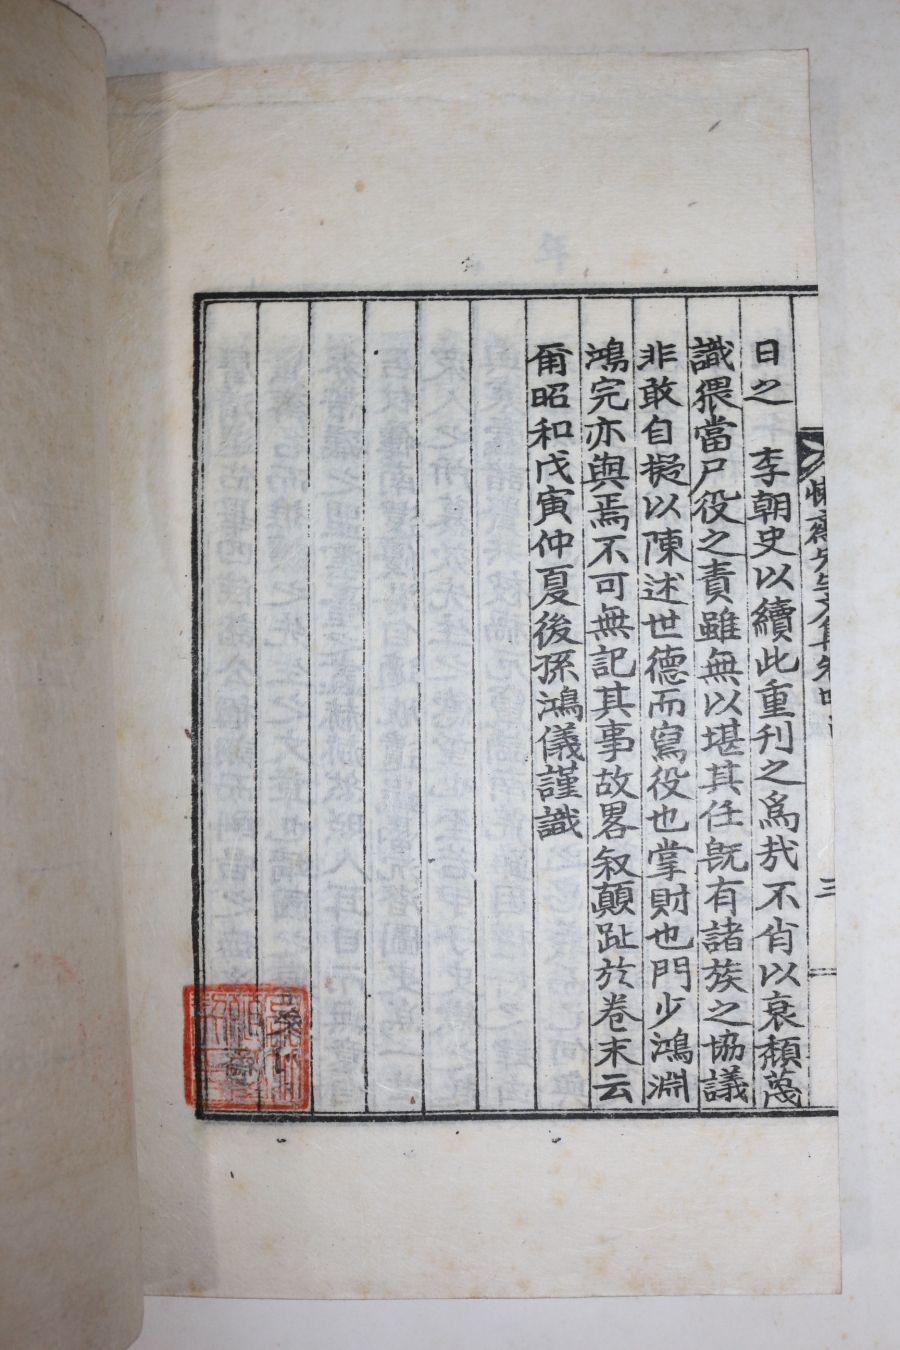 日之 李朝史以續此重刊之爲哉不肖以衰頹蔑
識猥當尸役之責雖無以堪其任旣有諸族之協議
非敢自擬以陳述世德而寫役也掌財也門少鴻淵
鴻完亦與焉不可無記其事故畧叙顛趾於卷末云
爾昭和戊寅仲夏後孫鴻儀謹識
齋先生文集卷四
三